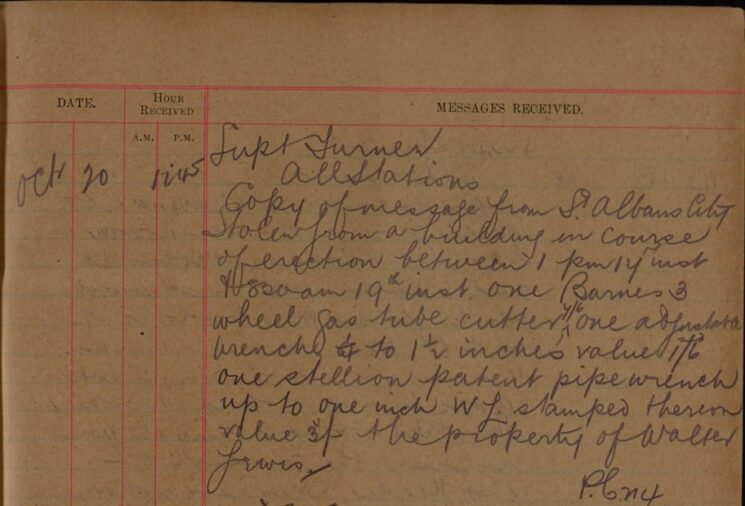 DATE. HOUR RECEIVED MESSAGES RECEIVED.
A.M. P.M.
Supt Turner
Oct 20 1245 All Stations
Copy of message from St Albans City
Stolen from a building in course
of erection between 1 pm 17th inst
& 830 am 19th inst. one Barnes 3
wheel gas tube cutter 7/6 one adjustable
wrench ¼ to 1½ inches value 7/6
one stellion patent pipe wrench
up to one inch W L. stamped thereon
value 3/- the property of Walter
Lewis.
P.C.